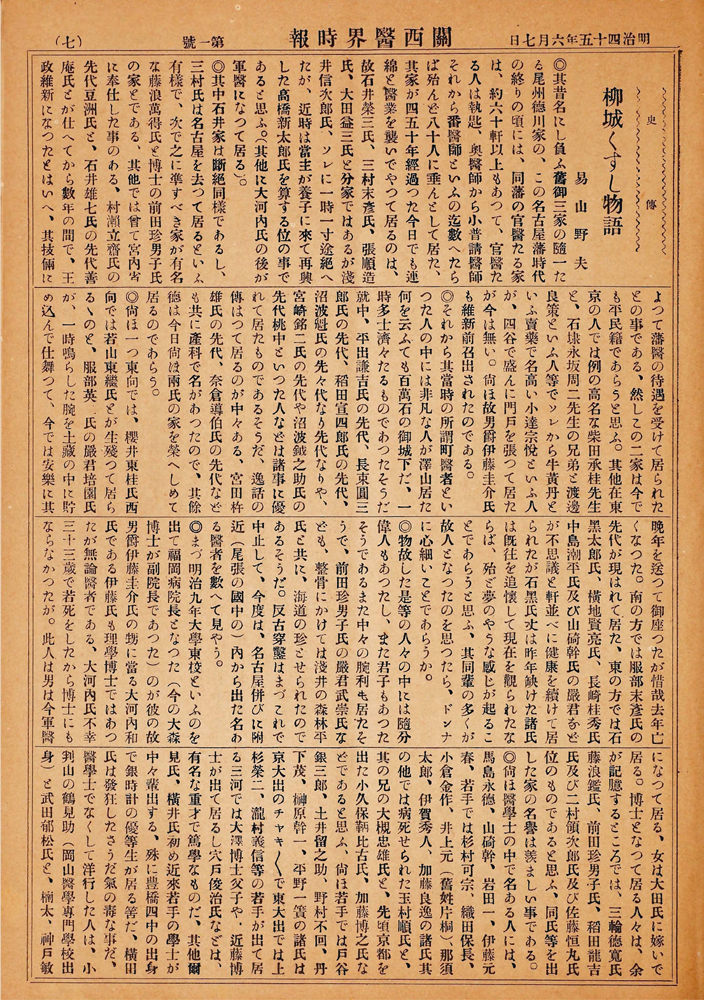 明治四十五年六月七日
關西醫界時報
第一號
(七)
史傳
柳城くすし物語
易山野夫
◎其昔名にし負ふ舊御三家の隨一た
る尾州德川家の、この名古屋藩時代
の終りの頃には、同藩の官醫たる家
は、約六十軒以上もあつて、官醫た
る人は執匙、奧醫師から小普請醫師
それから番醫師といふの迄數へたら
ば殆んど八十人に垂んとして居た、
其家が四五十年經過つた今日でも連
綿と醫業を襲いでやつて居るのは、
故石井榮三氏、三村末彥氏、張順造
氏、大田益三氏と分家ではあるが淺
井信次郎氏、ソレに一時一寸途絕へ
たが、近時は當主が養子に來て再興
した高橋新太郎氏を算する位の事で
あると思ふ。(其他に大河内氏の後が
軍醫になつて居る)。
◎其中石井家は斷絕同樣であるし、
三村氏は名古屋を去つて居るといふ
有樣で、次で之に準すべき家が有名
な藤浪萬得氏と博士の前田珍男子氏
の家とである、其他では曾て宮内省
に奉仕した事のある、村瀨立齋氏の
先代豆洲氏と、石井雄七氏の先代善
庵氏とが仕へてから數年の間で、王
政維新になつたとはいへ、其技倆に
よつて藩醫の待遇を受けて居られた
との事である、然しこの二家は今で
も平民籍であらうと思ふ。其他在東
京の人では例の高名な柴田承桂先生
と、石埭永坂周二先生の兄弟と渡邊
良策といふ人等でソレから牛黃丹と
いふ賣藥で名高い小達宗悅といふ人
が、四谷で盛んに門戶を張つて居た
が今は無い。尙ほ故男爵伊藤圭介氏
も維新前召出されたのである。
◎それから其當時の所謂町醫者とい
つた人の中には非凡な人が澤山居た
何を云ふても百萬石の御城下だ、一
時多士濟々たるものであつたそうだ
就中、平出謙吉氏の先代、長束圓三
郎氏の先代、稻田宣四郎氏の先代、
沼波魁氏の先々代なり先代なりや、
宮崎銘二氏の先代や沼波鉞之助氏の
先代桃中といつた人などは諸事に優
れて居たものであるそうだ、逸話の
傳はつて居るのが中々ある、宮田杵
雄氏の先代、奈倉導伯氏の先代など
も共に產科で名があつたので、其餘
德は今日尙ほ兩氏の家を榮へしめて
居るのであらう。
◎尙ほ一つ東向では、櫻井東桂氏西
向では若山東繼氏とが生殘つて居ら
るゝのと、服部英一氏の嚴君培園氏
が、一時鳴らした腕を土藏の中に貯
め込んで仕舞つて、今では安樂に其
晚年を送つて御座つたが惜哉去年亡
くなつた。南の方では服部末彥氏の
先代が現はれて居た、東の方では石
黑太郎氏、橫地賢亮氏、長崎桂秀氏
中島潮平氏及び山碕幹氏の嚴君など
が不思議と軒並べに健康を續けて居
られたが石黑氏丈は昨年缺けた諸氏
は旣往を追懷して現在を觀られたな
らば、殆ど夢のやうな感じが起るこ
とであらうと思ふ、其同輩の多くが
故人となつたのを思つたら、ドンナ
に心細いことであらうか。
◎物故した是等の人々の中には隨分
偉人もあつたし、また君子もあつた
そうであるまた中々の腕利も居たそ
うで、前田珍男子氏の嚴君武崇氏な
ども、整骨にかけては淺井の森林平
氏と共に、海道の珍とせられたので
あるそうだ。反古穿鑿はまづこれで
中止して、今度は、名古屋併びに附
近(尾張の國中の)内から出た名あ
る醫者を數へて見やう。
◎まづ明治九年大學東校といふのを
出て福岡病院長となつた(今の大森
博士が副院長であつた)のが彼の故
男爵伊藤圭介氏の甥に當る大河内和
氏である伊藤氏も理學博士ではあつ
たが無論醫者である、大河内氏不幸
三十三歲で若死をしたから博士にも
ならなかつたが。此人は男は今軍醫
になつて居る、女は大田氏に嫁いで
居る。博士となつて居る人々は、余
が記憶するところでは、三輪德寬氏
藤浪鑑氏、前田珍男子氏、稻田龍吉
氏及び二村領次郎氏及び佐藤恒丸氏
位のものであると思ふ、同氏等を出
した家の名譽は羨ましい事である。
◎尙ほ醫學士の中で名ある人には、
馬島永德、山碕幹、岩田一、伊藤元
春、若手では杉村可宗、織田保長、
小倉金作、井上元(舊姓片桐)那須
太郎、伊賀秀人、加藤良逸の諸氏其
の他では病死せられた玉村順氏と、
其の兄の大槻忠雄氏と、先頃京都を
出た小久保鞆比古氏、加藤博之氏な
どであると思ふ、尙ほ若手では戶谷
銀三郎、土井留之助、野村不回、丹
下茂、榊原幹一、平野一簣の諸氏は
京大出のチャキ〱で東大出では上
杉榮二、瀧村義信等の若手が出て居
る三河では大澤博士父子や、近藤博
士が出て居るし宍戶俊治氏などは、
有名な重才で篤學なものだ、其他爾
見氏、橫井氏初め近來若手の學士が
中々輩出する、殊に豊橋四中の出身
で銀時計の優等生が居る筈だ、橫田
氏は發狂したさうだ氣の毒な事だ、
醫學士でなくして洋行した人は、小
判山の鶴見助(岡山醫學專門學校出
身)と武田郁松氏と、楠太、神戶敏